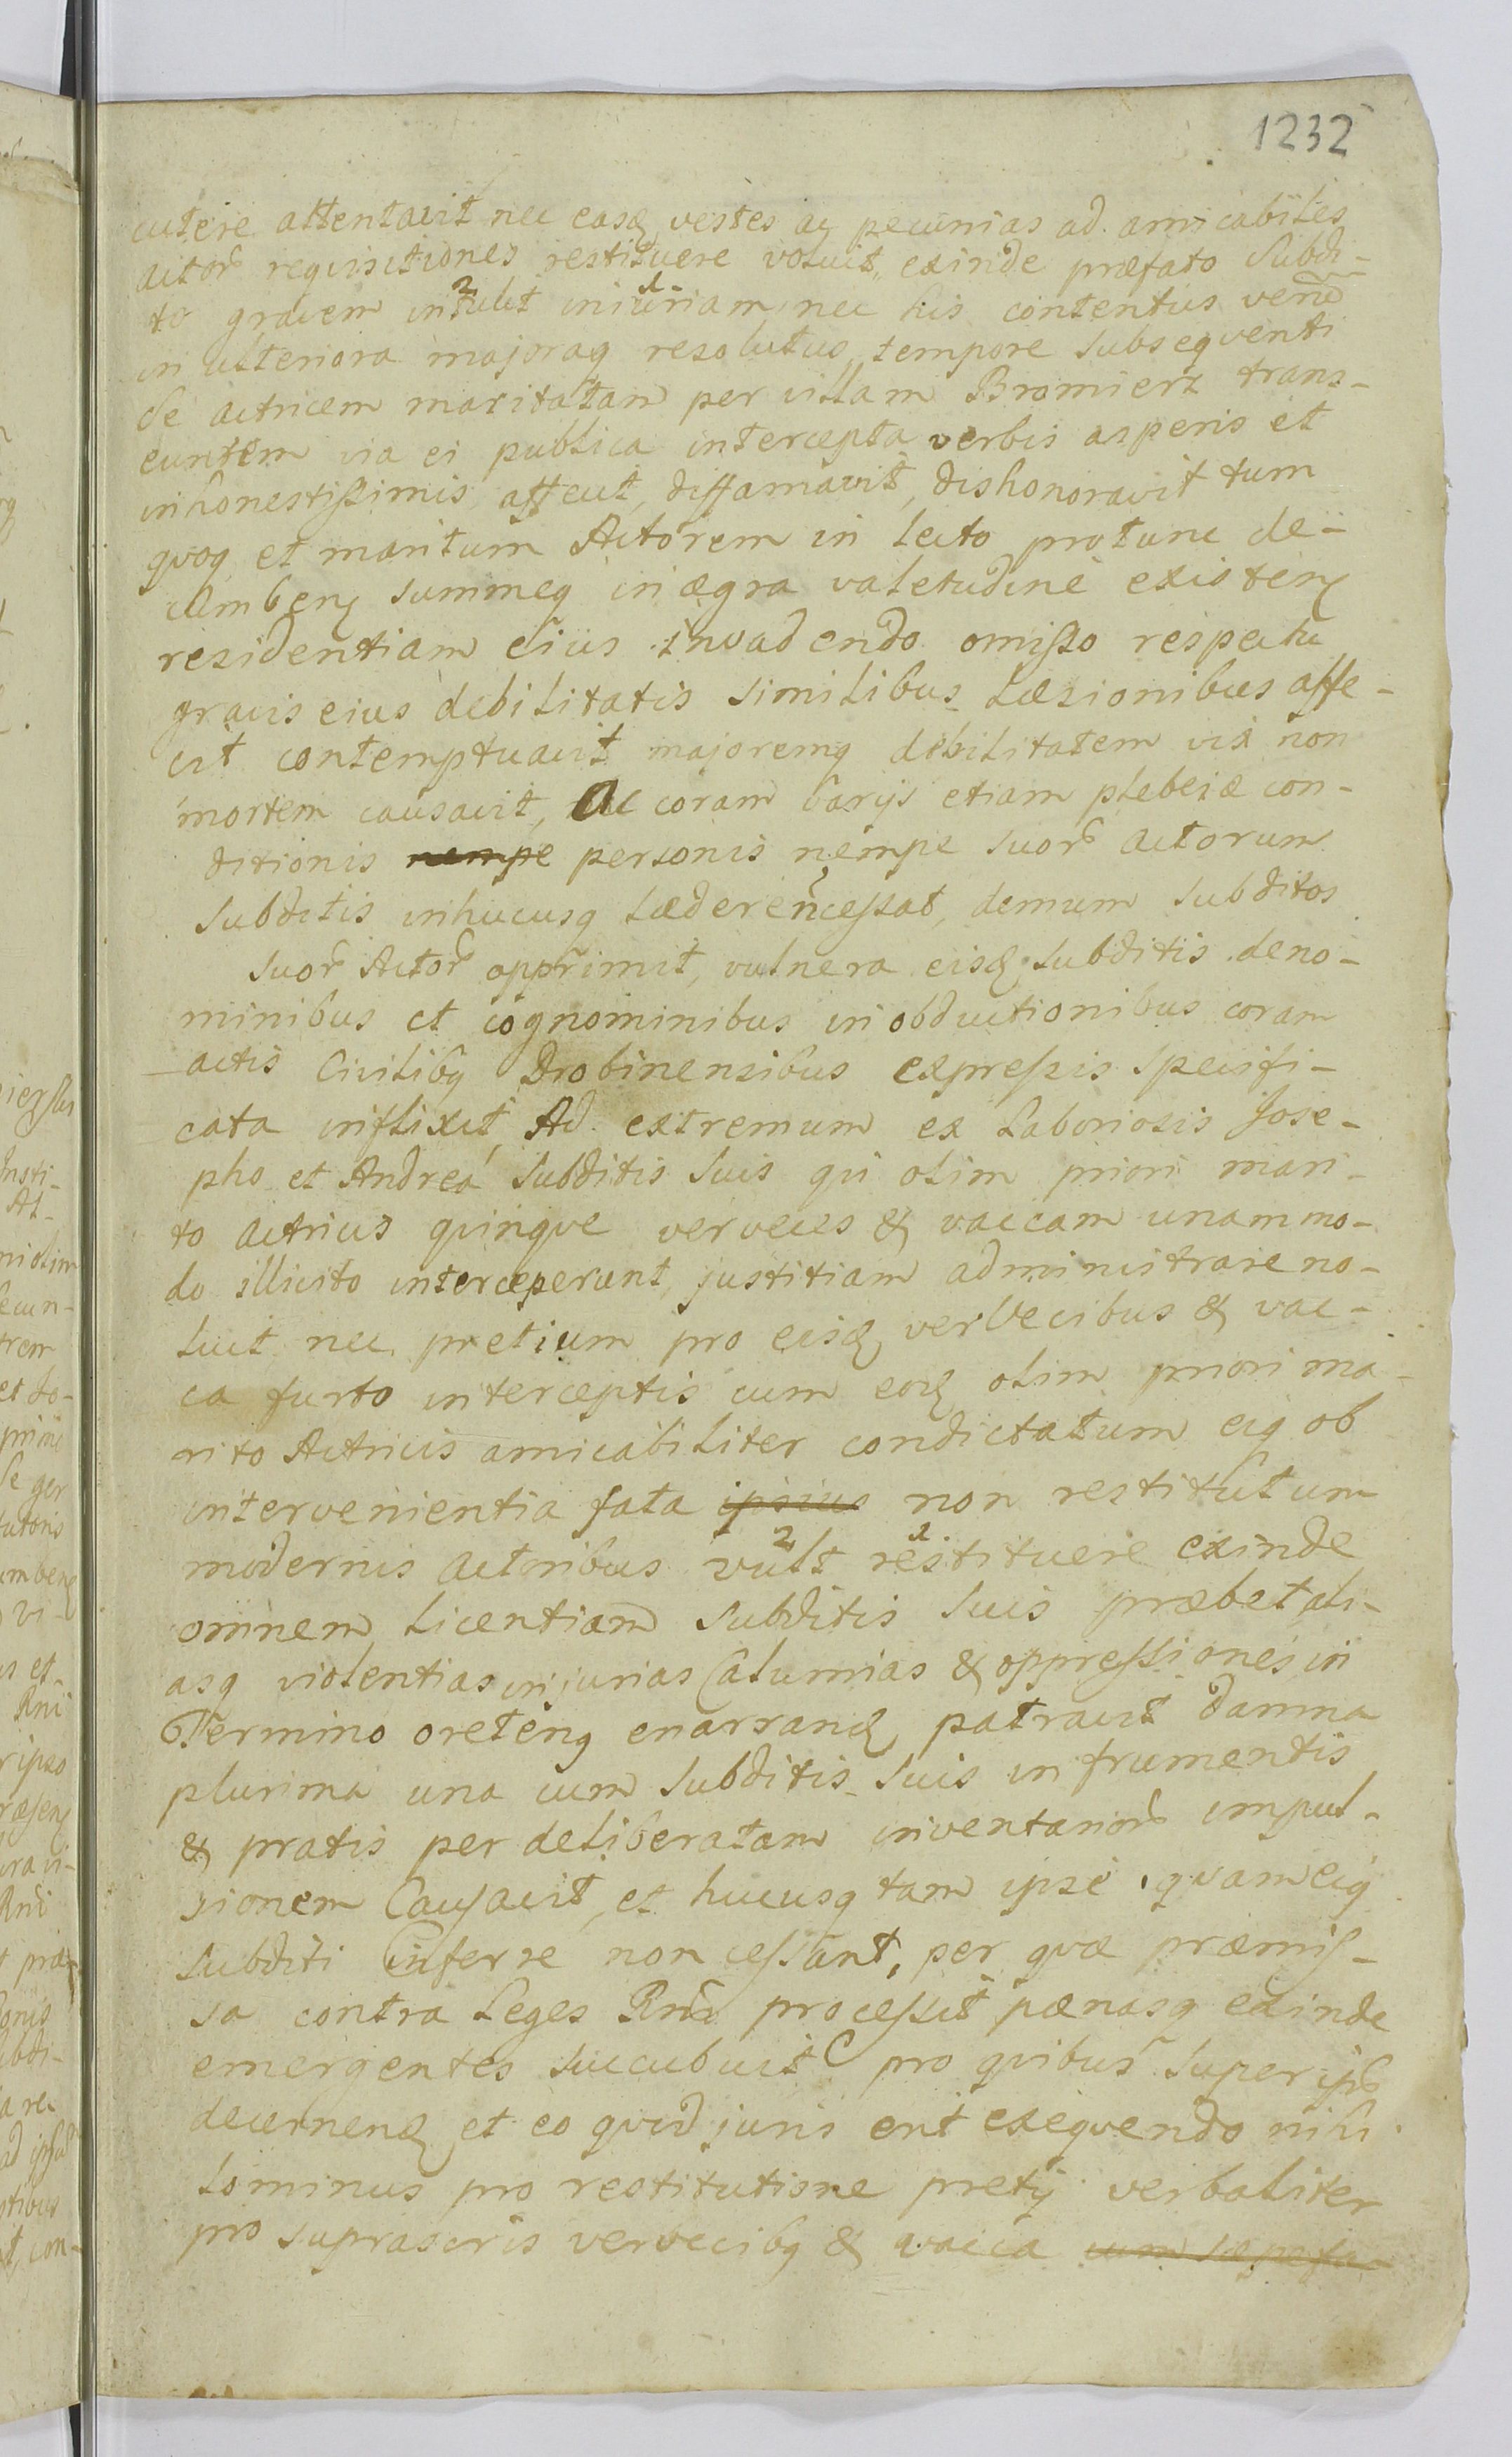 1232
cutere attentavit nec easq vestes aq pecunias ad amicabiles
actor requisitiones restituere voluit, exinde præfato Subdi-
to gravem intulit iniuriam, nec his contentus verũ
in ulteriora majoraq resolutus, tempore subseqventi
de actricem maritatam per villam Bromierz trans-
euntem via ei publica intercepta verbis asperis et
inhonestissimis affecit, diffamavit, dishonoravit tum
qvoq et maritum Actorem in lecto protunc de-
cumbenq summeq in ægra valetudine existenq
residentiam eius invadendo omisso respectu
gravis eius debilitatis similibus Læzionibus affe-
cit contemptuavit majoremq debilitatem vix non
mortem causavit, Ac coram varijs etiam plebeiæ con-
ditionis nempe personis nempe suor actorum
Subditis inhucusq Lædere ñ cessat, demum subditos
suor Actor opprimit, vulnera eisq subditis de no-
minibus et cognominibus in obductionibus coram
actis Civilibq Drobinensibus expressis specifi-
cata inflixit, Ad extremum ex Laboriosis Jose-
pho et Andrea Subditis suis qui olim priori mari-
to actricis qvinqve verveces & vaccam unam mo-
do illicito interceperunt, justitiam administrare no-
luit nec pretium pro eisq verVecibus & vac-
ca furto interceptis cum eoq olim priori ma-
rito Actricis amicabiliter condictatum eiq ob
intervenientia fata ipsius non restitutum
modernis actoribus vult restituere exinde
omnem Licentiam Subditis suis præbet ali-
asq violentias injurias Calumias & oppressiones in
Termino oretenq enarranq patravit damna
plurima una cum subditis suis in frumentis
& pratis per deliberatam inventarior impul-
sionem Causavit, et hucusq tam ipse qvam eiq
subditi inferre non cessant, per qvæ præmis-
sa contra Leges Rni processit pænasq exinde
emergentes succubuit pro qvibus super ips
decernenq et eo qvid juris erit exeqvendo nihi
Lominus pro restitutione pretij verbaliter
pro suprascris vervecibq & vacca cum sæpefa-